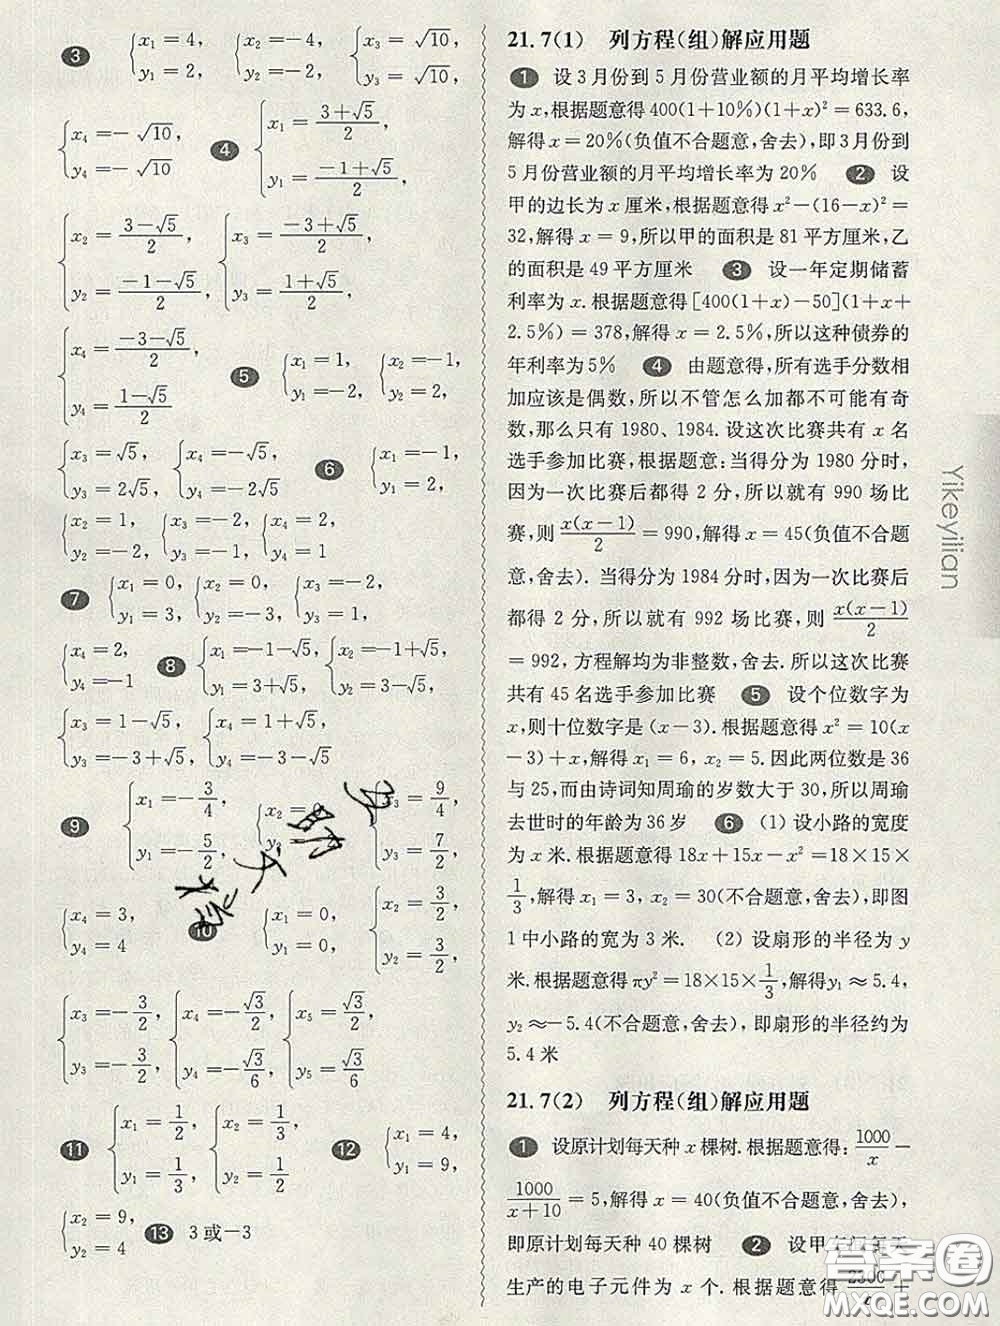 ③ {x₁=4, y₁=2, {x₂=-4, y₂=-2, {x₃=√10, y₃=√10,
{x₄=-√10, y₄=-√10 ④ {x₁=(3+√5)/2, y₁=(-1+√5)/2,
{x₂=(3-√5)/2, y₂=(-1-√5)/2, {x₃=(-3+√5)/2, y₃=(1+√5)/2,
{x₄=(-3-√5)/2, y₄=(1-√5)/2 ⑤ {x₁=1, y₁=-2, {x₂=-1, y₂=2,
{x₃=√5, y₃=2√5, {x₄=-√5, y₄=-2√5 ⑥ {x₁=-1, y₁=2,
{x₂=1, y₂=-2, {x₃=-2, y₃=-1, {x₄=2, y₄=1
⑦ {x₁=0, y₁=3, {x₂=0, y₂=-3, {x₃=-2, y₃=1,
{x₄=2, y₄=-1 ⑧ {x₁=-1-√5, y₁=3+√5, {x₂=-1+√5, y₂=3-√5,
{x₃=1-√5, y₃=-3+√5, {x₄=1+√5, y₄=-3-√5
⑨ {x₁=-3/4, y₁=-5/2, {x₂= y₂ {x₃=9/4, y₃=7/2,
{x₄=3, y₄=4 ⑩ {x₁=0, y₁=0, {x₂=3/2, y₂=3/2,
{x₃=-3/2, y₃=-3/2, {x₄=-√3/2, y₄=-√3/6, {x₅=√3/2, y₅=√3/6
⑪ {x₁=1/2, y₁=1/3, {x₂=1/3, y₂=1/2 ⑫ {x₁=4, y₁=9,
{x₂=9, y₂=4 ⑬ 3或-3
21.7(1) 列方程(组)解应用题
① 设3月份到5月份营业额的月平均增长率
为x,根据题意得400(1+10%)(1+x)²=633.6,
解得x=20%(负值不合题意,舍去),即3月份到
5月份营业额的月平均增长率为20% ② 设
甲的边长为x厘米,根据题意得x²-(16-x)²=
32,解得x=9,所以甲的面积是81平方厘米,乙
的面积是49平方厘米 ③ 设一年定期储蓄
利率为x.根据题意得[400(1+x)-50](1+x+
2.5%)=378,解得x=2.5%,所以这种债券的
年利率为5% ④ 由题意得,所有选手分数相
加应该是偶数,所以不管怎么加都不可能有奇
数,那么只有1980、1984.设这次比赛共有x名
选手参加比赛,根据题意:当得分为1980分时,
因为一次比赛后都得2分,所以就有990场比
赛,则x(x-1)/2=990,解得x=45(负值不合题
意,舍去).当得分为1984分时,因为一次比赛后
都得2分,所以就有992场比赛,则x(x-1)/2
=992,方程解均为非整数,舍去.所以这次比赛
共有45名选手参加比赛 ⑤ 设个位数字为
x,则十位数字是(x-3).根据题意得x²=10(x
-3)+x,解得x₁=6,x₂=5.因此两位数是36
与25,而由诗词知周瑜的岁数大于30,所以周瑜
去世时的年龄为36岁 ⑥ (1)设小路的宽度
为x米.根据题意得18x+15x-x²=18×15×
1/3,解得x₁=3,x₂=30(不合题意,舍去),即图
1中小路的宽为3米. (2)设扇形的半径为y
米.根据题意得πy²=18×15×1/3,解得y₁≈5.4,
y₂≈-5.4(不合题意,舍去),即扇形的半径约为
5.4米
21.7(2) 列方程(组)解应用题
① 设原计划每天种x棵树.根据题意得:1000/x-
1000/(x+10)=5,解得x=40(负值不合题意,舍去),
即原计划每天种40棵树 ② 设甲
生产的电子元件为x个.根据题意得
Yikeyilian
答案圈
MXQE.COM